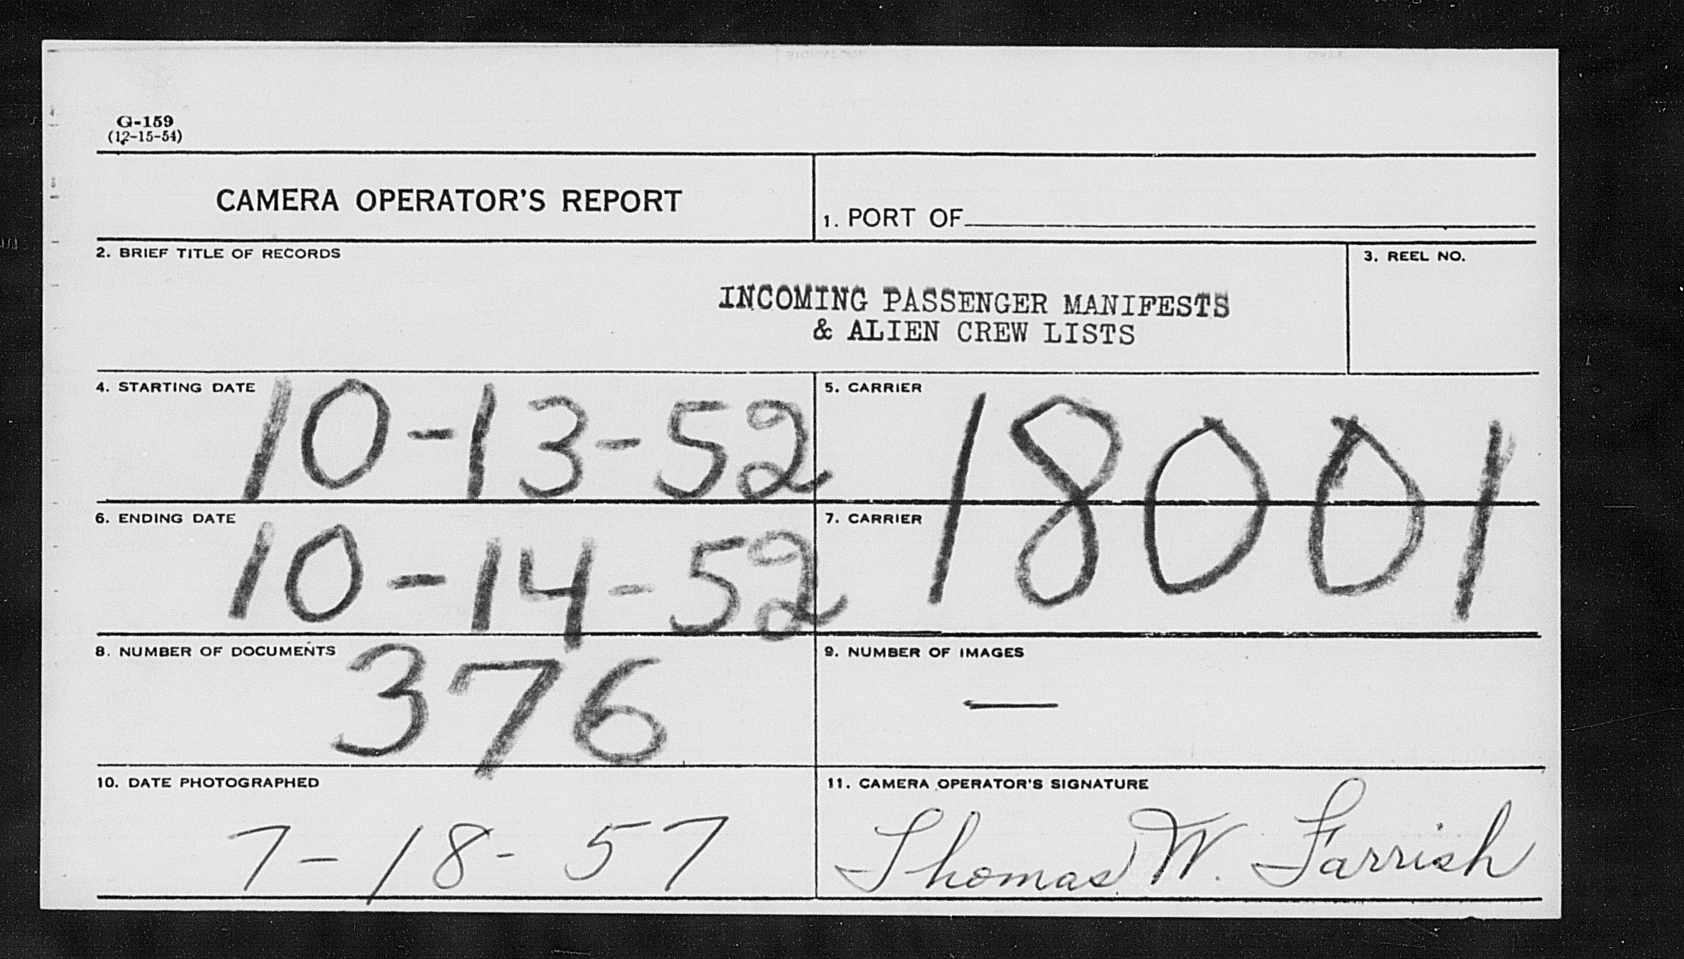 G-159
(12-15-54)
CAMERA OPERATOR'S REPORT
1. PORT OF
2. BRIEF TITLE OF RECORDS
3. REEL NO.
INCOMING PASSENGER MANIFESTS
& ALIEN CREW LISTS
4. STARTING DATE
10-13-52
5. CARRIER
18001
6. ENDING DATE
10-14-52
7. CARRIER
8. NUMBER OF DOCUMENTS
376
9. NUMBER OF IMAGES
—
10. DATE PHOTOGRAPHED
7-18-57
11. CAMERA OPERATOR'S SIGNATURE
Thomas W. Farrish